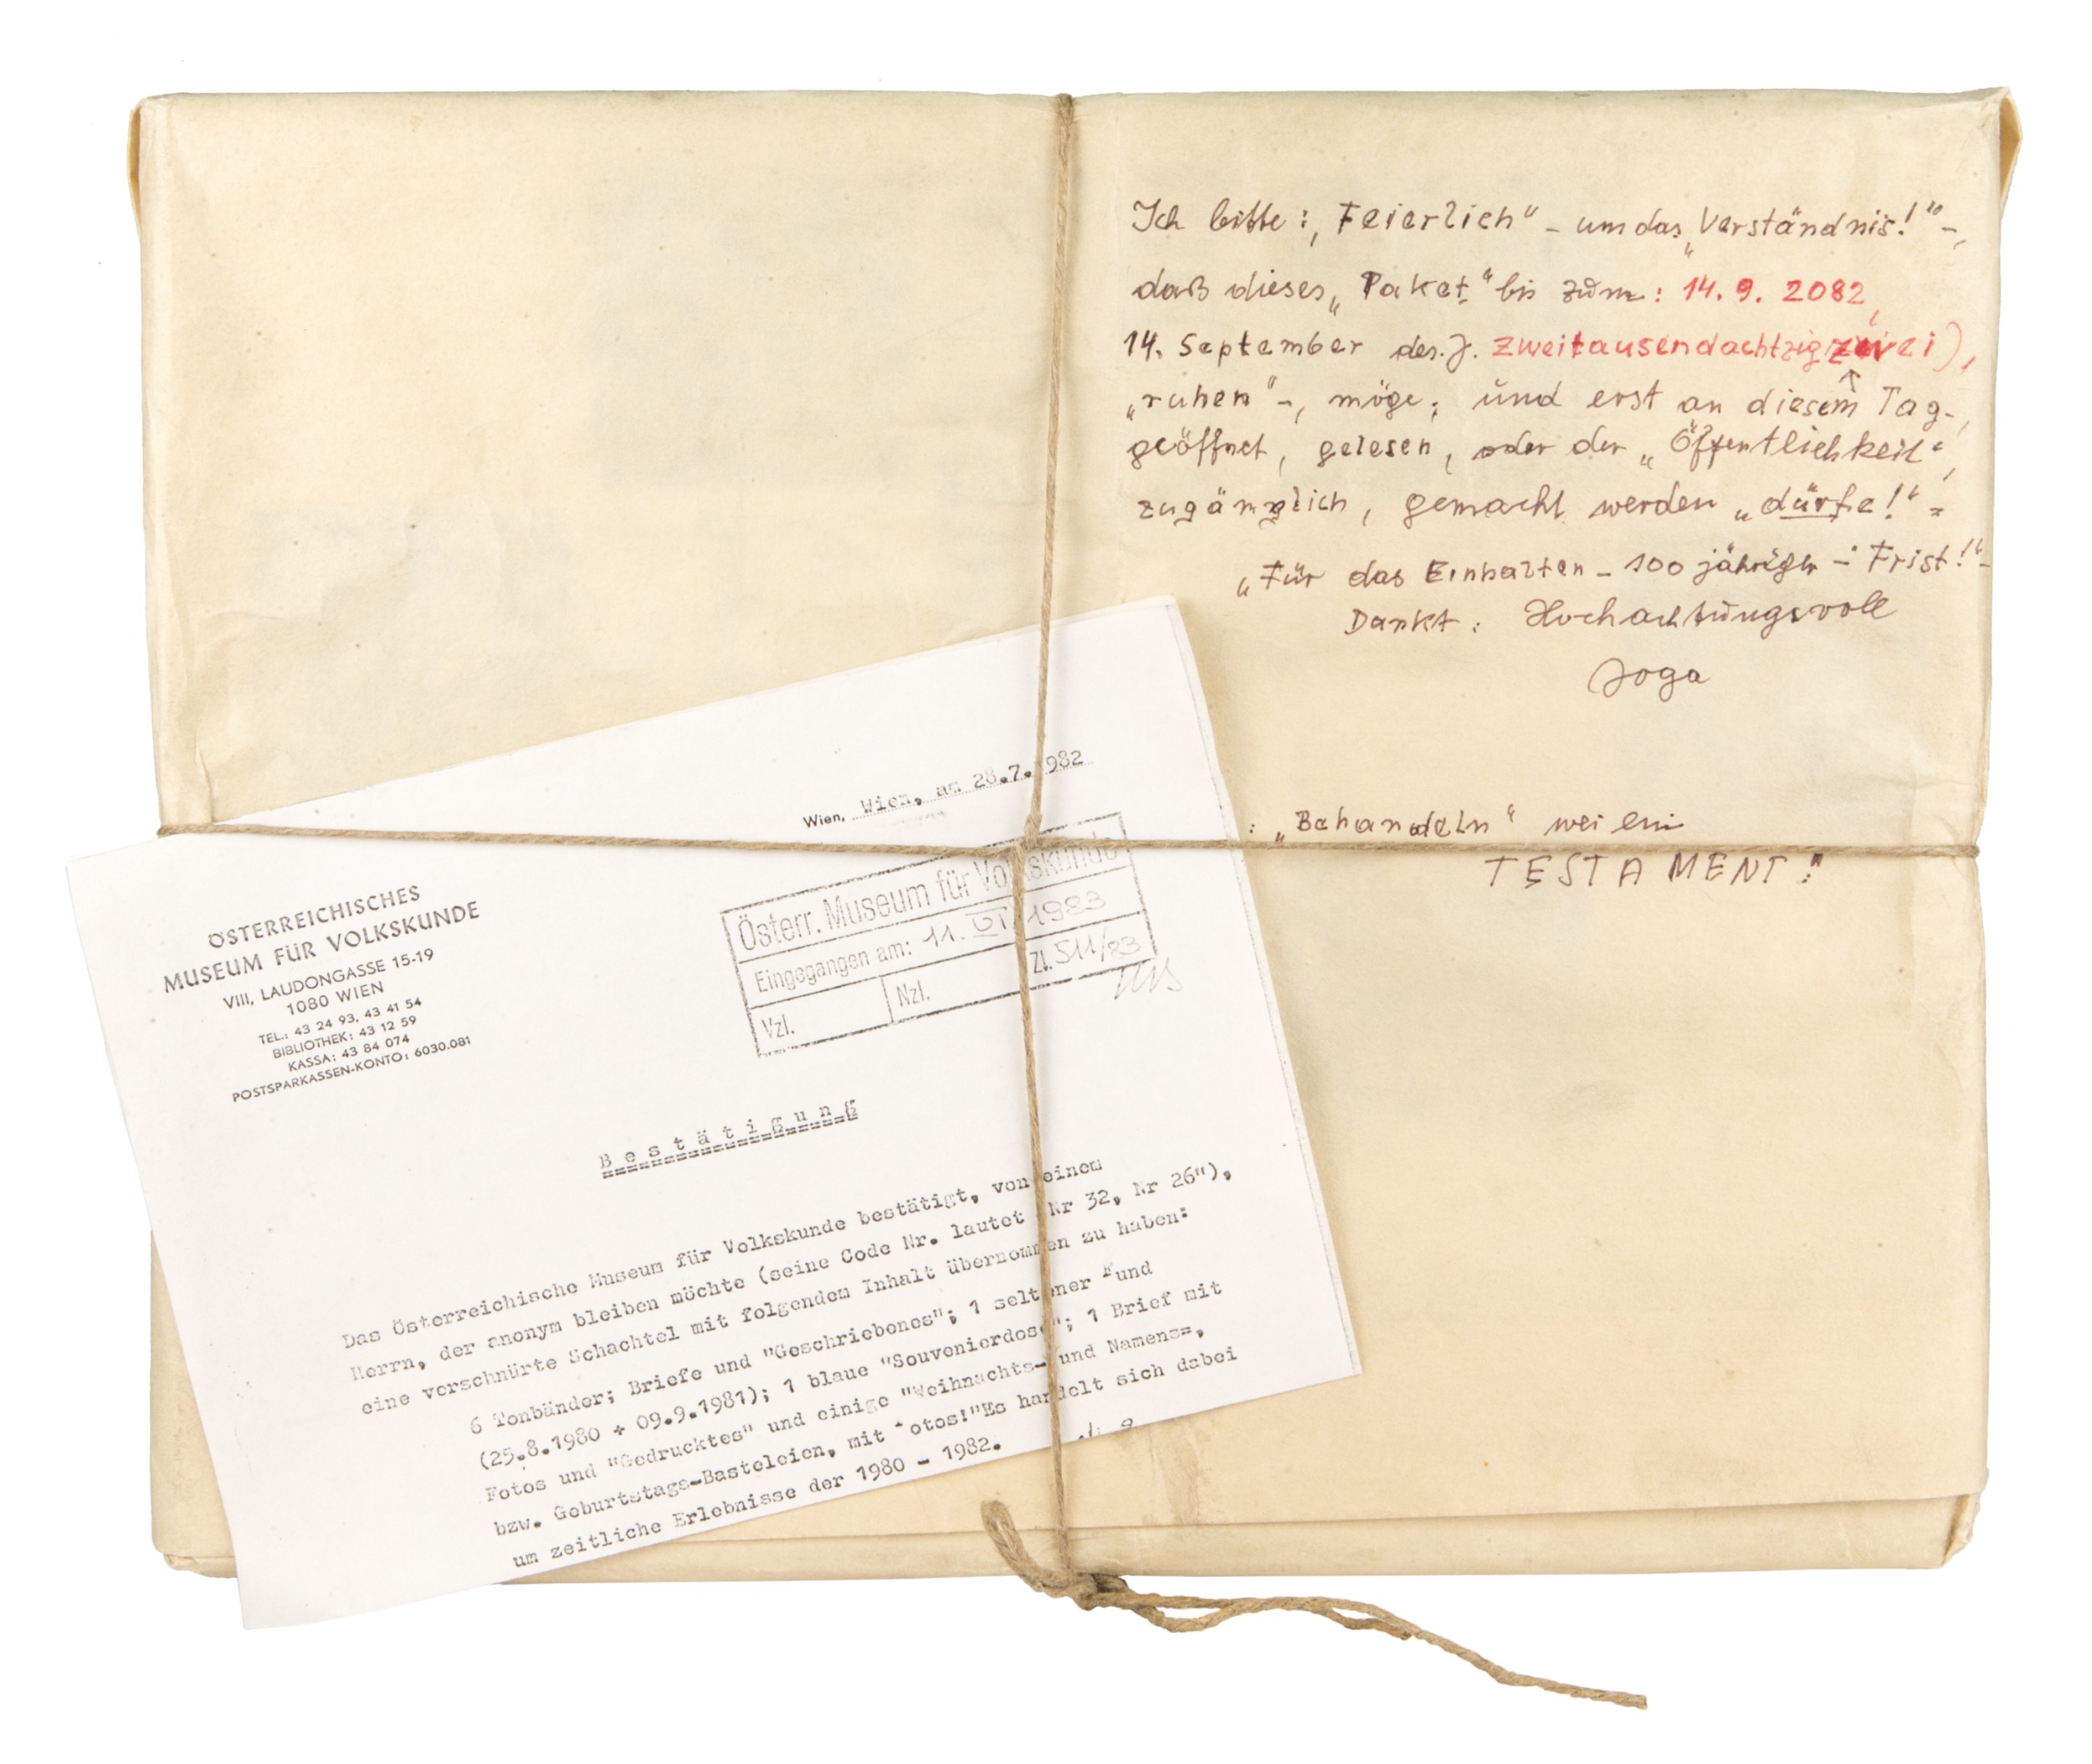 Ich bitte: „Feierlich" – um das „Verständnis!" –,
daß dieses „Paket" bis zum: 14. 9. 2082,
14. September des. J. zweitausendachtzigzwei),
„ruhen" –, möge; und erst an diesem Tag –,
geöffnet, gelesen, oder der „Öffentlichkeit",
zugänglich, gemacht werden „dürfe!" =
„Für das Einhalten – 100 jähriger – Frist!" –
Dankt: Hochachtungsvoll
Joga
: „Behandeln" wei ein
TESTAMENT!"
Wien, Wien, am 28.7.1982
ÖSTERREICHISCHES
MUSEUM FÜR VOLKSKUNDE
VIII, LAUDONGASSE 15-19
1080 WIEN
TEL.: 43 24 93, 43 41 54
BIBLIOTHEK: 43 12 59
KASSA: 43 84 074
POSTSPARKASSEN-KONTO: 6030.081
Österr. Museum für Volkskunde
Eingegangen am: 11. VI. 1983
Zl. 511/83
Vzl. Nzl.
Bestätigung
Das Österreichische Museum für Volkskunde bestätigt, von einem
Herrn, der anonym bleiben möchte (seine Code Nr. lautet Nr 32, Nr 26"),
eine verschnürte Schachtel mit folgendem Inhalt übernommen zu haben:
6 Tonbänder; Briefe und "Geschriebenes"; 1 seltener Fund
(25.8.1980 + 09.9.1981); 1 blaue "Souvenierdose"; 1 Brief mit
Fotos und "Gedrucktes" und einige "Weihnachts- und Namens=,
bzw. Geburtstags-Basteleien, mit Fotos!"Es handelt sich dabei
um zeitliche Erlebnisse der 1980 - 1982.